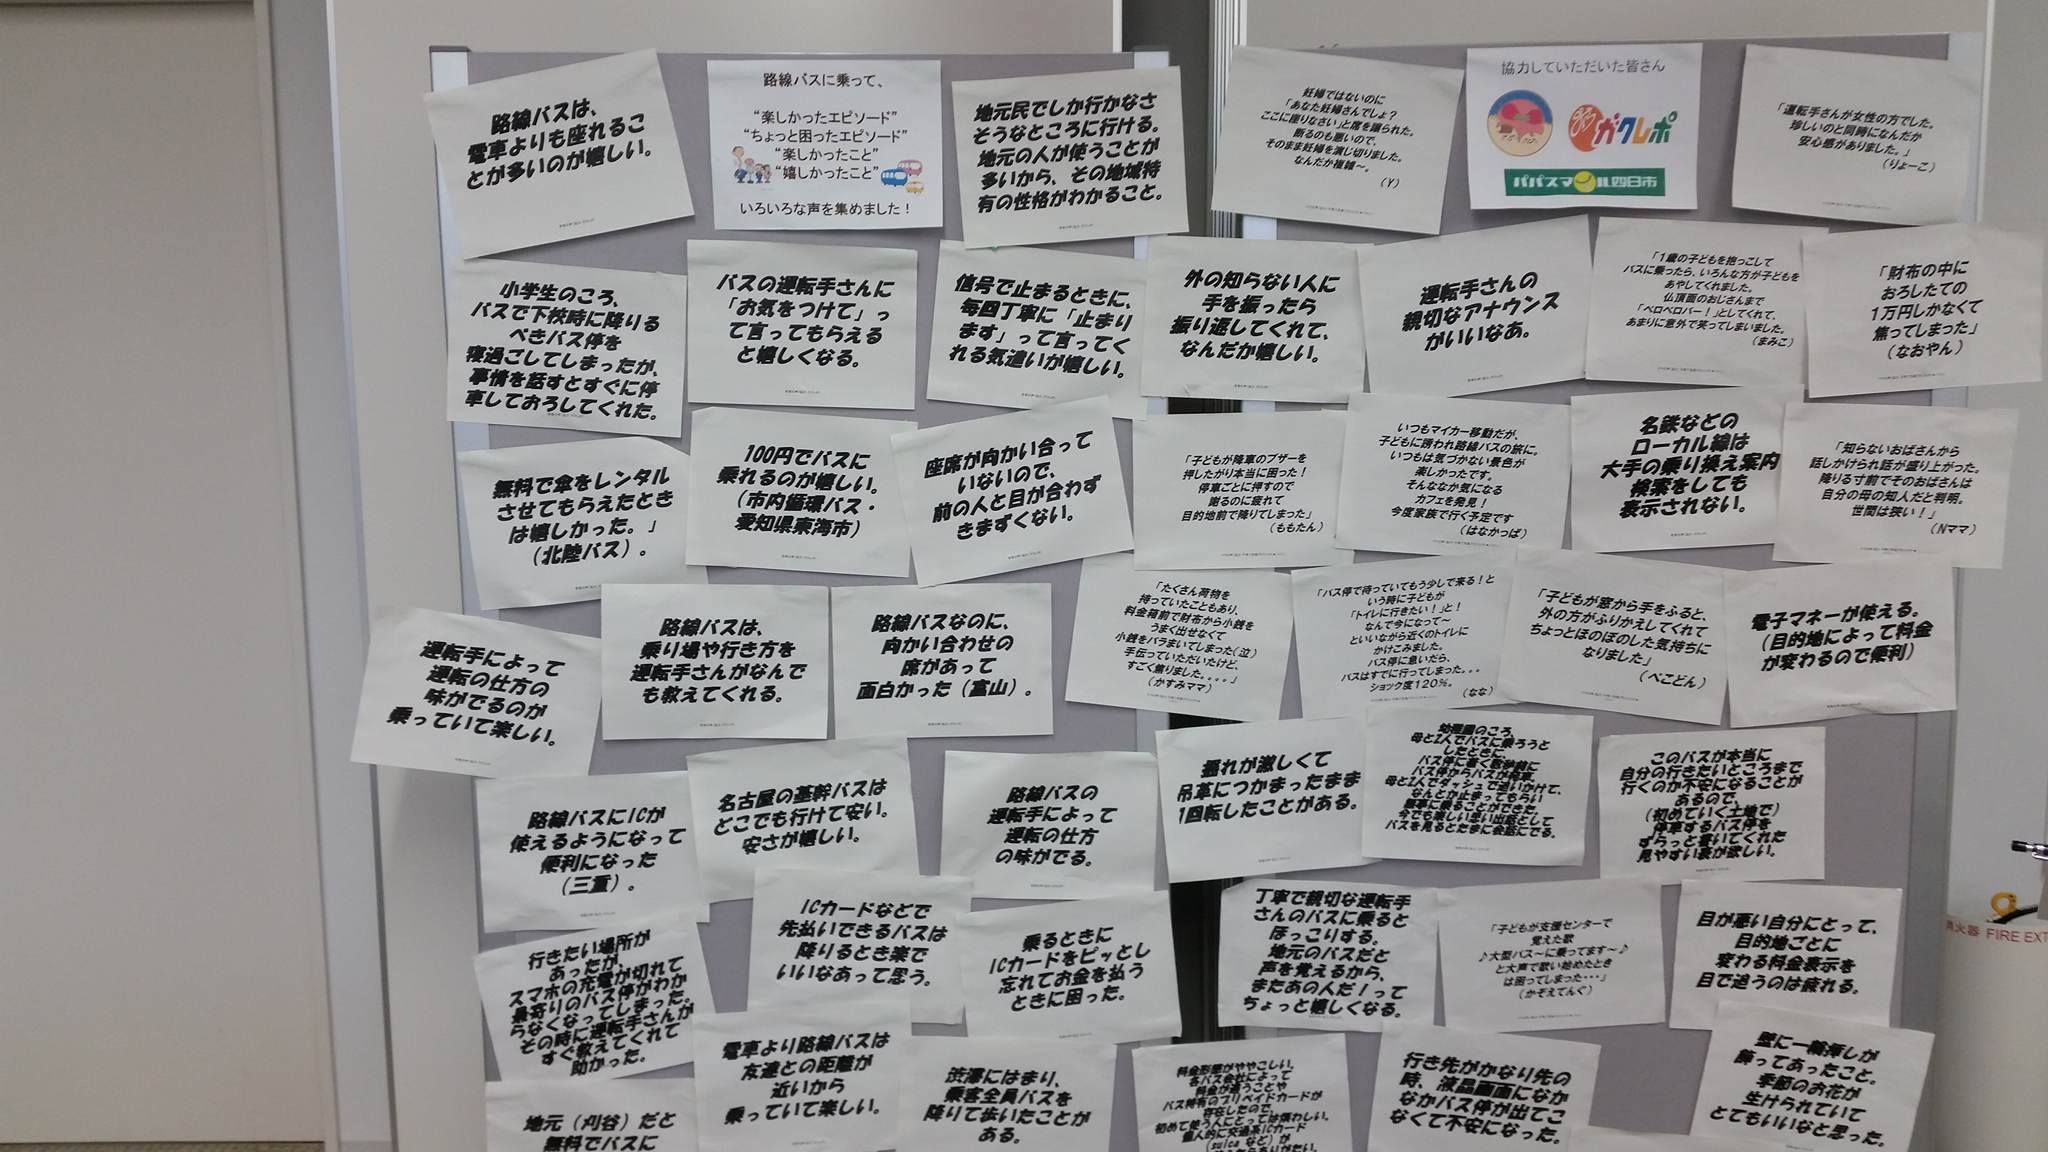 路線バスは、
電車よりも座れるこ
とが多いのが嬉しい。
路線バスに乗って、
“楽しかったエピソード”
“ちょっと困ったエピソード”
“楽しかったこと”
“嬉しかったこと”
いろいろな声を集めました！
地元民でしか行かなさ
そうなところに行ける。
地元の人が使うことが
多いから、その地域特
有の性格がわかること。
妊婦ではないのに
「あなた妊婦さんでしょ？
ここに座りなさい」と席を譲られた。
断るのも悪いので、
そのまま妊婦を演じ切りました。
なんだか複雑～。
（Y）
協力していただいた皆さん
ガクレポ
パパスマイル四日市
「運転手さんが女性の方でした。
珍しいのと同時になんだか
安心感がありました。」
（りょーこ）
小学生のころ、
バスで下校時に降りる
べきバス停を
寝過ごしてしまったが、
事情を話すとすぐに停
車しておろしてくれた。
バスの運転手さんに
「お気をつけて」っ
て言ってもらえる
と嬉しくなる。
信号で止まるときに、
毎回丁寧に「止まり
ます」って言ってく
れる気遣いが嬉しい。
外の知らない人に
手を振ったら
振り返してくれて、
なんだか嬉しい。
運転手さんの
親切なアナウンス
がいいなあ。
「1歳の子どもを抱っこして
バスに乗ったら、いろんな方が子どもを
あやしてくれました。
仏頂面のおじさんまで
「ベロベロバー！」としてくれて、
あまりに意外で笑ってしまいました。
（まみこ）
「財布の中に
おろしたての
1万円しかなくて
焦ってしまった」
（なおやん）
無料で傘をレンタル
させてもらえたとき
は嬉しかった。」
（北陸バス）。
100円でバスに
乗れるのが嬉しい。
（市内循環バス・
愛知県東海市）
座席が向かい合って
いないので、
前の人と目が合わず
きまずくない。
「子どもが降車のブザーを
押したがり本当に困った！
停車ごとに押すので
謝るのに疲れて
目的地前で降りてしまった」
（ももたん）
いつもマイカー移動だが、
子どもに誘われ路線バスの旅に。
いつもは気づかない景色が
楽しかったです。
そんななか気になる
カフェを発見！
今度家族で行く予定です
（はなかっぱ）
名鉄などの
ローカル線は
大手の乗り換え案内
検索をしても
表示されない。
「知らないおばさんから
話しかけられ話が盛り上がった。
降りる寸前でそのおばさんは
自分の母の知人だと判明。
世間は狭い！」
（Nママ）
運転手によって
運転の仕方の
味がでるのが
乗っていて楽しい。
路線バスは、
乗り場や行き方を
運転手さんがなんで
も教えてくれる。
路線バスなのに、
向かい合わせの
席があって
面白かった（富山）。
「たくさん荷物を
持っていたこともあり、
料金箱前で財布から小銭を
うまく出せなくて
小銭をバラまいてしまった（泣）
手伝っていただいたけど、
すごく焦りました。。。。」
（かすみママ）
「バス停で待っていてもう少しで来る！と
いう時に子どもが
「トイレに行きたい！」と！
なんで今になって～
といいながら近くのトイレに
かけこみました。
バス停に急いだら、
バスはすでに行ってしまった．．．
ショック度120％。
（なな）
「子どもが窓から手をふると、
外の方がふりかえしてくれて
ちょっとほのぼのした気持ちに
なりました」
（ぺこどん）
電子マネーが使える。
（目的地によって料金
が変わるので便利）
路線バスにICが
使えるようになって
便利になった
（三重）。
名古屋の基幹バスは
どこでも行けて安い。
安さが嬉しい。
路線バスの
運転手によって
運転の仕方
の味がでる。
揺れが激しくて
吊革につかまったまま
1回転したことがある。
幼稚園のころ、
母と2人でバスに乗ろうと
したときに、
バス停に着く数秒前に
バス停からバスが発車。
母と2人でダッシュで追いかけて、
なんとか止まってもらい
無事に乗ることができた。
今でも楽しい思い出話として
バスを見るとたまに会話にでる。
このバスが本当に
自分の行きたいところまで
行くのか不安になることが
あるので、
（初めていく土地で）
停車するバス停を
ずらっと書いてくれた
見やすい表が欲しい。
行きたい場所が
あったが、
スマホの充電が切れて
最寄りのバス停がわか
らなくなってしまった。
その時に運転手さんが
すぐ教えてくれて
助かった。
ICカードなどで
先払いできるバスは
降りるとき楽で
いいなあって思う。
乗るときに
ICカードをピッとし
忘れてお金を払う
ときに困った。
丁寧で親切な運転手
さんのバスに乗ると
ほっこりする。
地元のバスだと
声を覚えるから、
またあの人だ！って
ちょっと嬉しくなる。
「子どもが支援センターで
覚えた歌
♪大型バス～に乗ってます～♪
と大声で歌い始めたとき
は困ってしまった・・・」
（かぞえてんぐ）
目が悪い自分にとって、
目的地ごとに
変わる料金表示を
目で追うのは疲れる。
火器 FIRE EXT
地元（刈谷）だと
無料でバスに
電車より路線バスは
友達との距離が
近いから
乗っていて楽しい。
渋滞にはまり、
乗客全員バスを
降りて歩いたことが
ある。
料金形態がややこしい。
各バス会社によって
料金が違うことや
バス特有のプリペイドカードが
存在したので、
初めて使う人にとっては煩わしい。
個人的に交通系ICカード
（suica など）が
行き先がかなり先の
時、液晶画面になか
なかバス停が出てこ
なくて不安になった。
壁に一輪挿しが
飾ってあったこと。
季節のお花が
生けられていて
とてもいいなと思った。